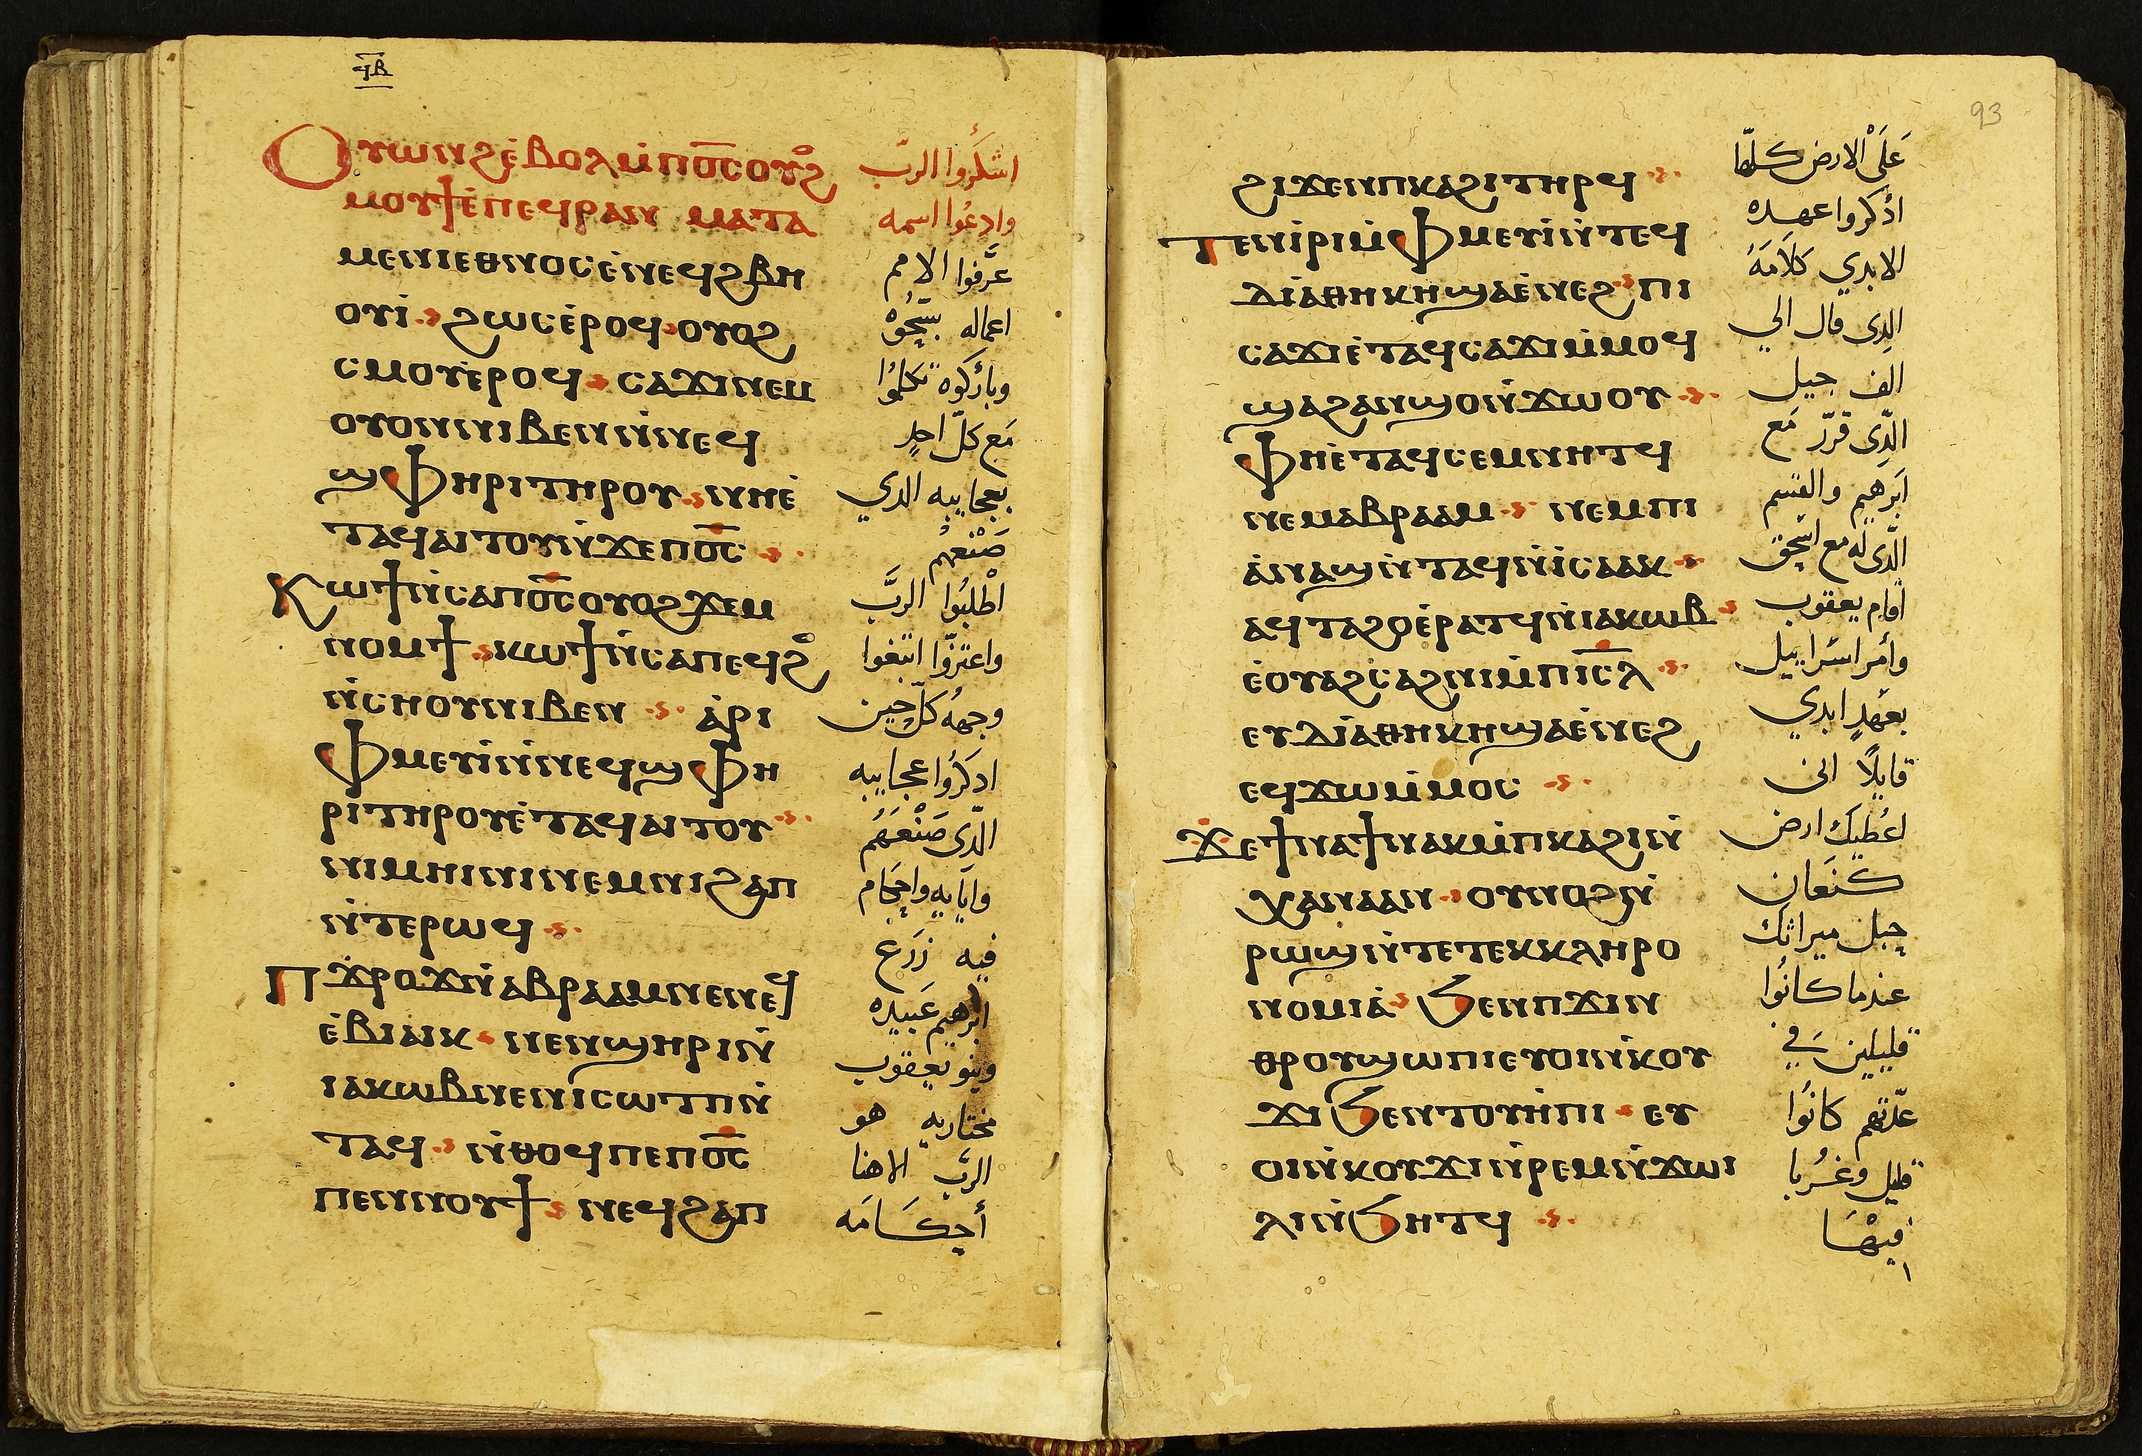 ϥⲃ
Ⲟⲩⲱⲛϩ ⲉ̀ⲃⲟⲗ ⲙ̀ⲡⲟ̅ⲥ̅ ⲟⲩⲟϩ
ⲙⲟⲩϯ ⲉ̀ⲡⲉϥⲣⲁⲛ ⲙⲁⲧⲁ
ⲙⲉⲛⲓⲉⲑⲛⲟⲥ ⲉ̀ⲛⲉϥϩⲃⲏ
ⲟⲩⲓ̀ ϩⲱⲥ ⲉ̀ⲣⲟϥ ⲟⲩⲟϩ
ⲥⲙⲟⲩ ⲉ̀ⲣⲟϥ ⲥⲁϫⲓ ⲛⲉⲙ
ⲟⲩⲟⲛ ⲛⲓⲃⲉⲛ ⲛ̀ⲛⲉϥ
ϣⲫⲏⲣⲓ ⲧⲏⲣⲟⲩ ⲛⲏⲉ̀
ⲧⲁϥⲁⲓⲧⲟⲩ ⲛ̀ϫⲉ ⲡⲟ̅ⲥ̅
Ⲕⲱϯ ⲛ̀ⲥⲁ ⲡⲟ̅ⲥ̅ ⲟⲩⲟϩ ϫⲉⲙ
ⲛⲟⲙϯ ⲕⲱϯ ⲛ̀ⲥⲁ ⲡⲉϥϩⲟ
ⲛ̀ⲥⲏⲟⲩ ⲛⲓⲃⲉⲛ ⲁ̀ⲣⲓ
ⲫⲙⲉⲩⲓ̀ ⲛ̀ⲛⲉϥϣⲫⲏ
ⲣⲓ ⲧⲏⲣⲟⲩ ⲉ̀ⲧⲁϥⲁⲓⲧⲟⲩ
ⲛⲓⲙⲏⲓⲛⲓ ⲛⲉⲙ ⲛⲓϩⲁⲡ
ⲛ̀ⲧⲉ ⲣⲱϥ
Ⲡϫⲣⲟϫ ⲛ̀ⲁⲃⲣⲁⲁⲙ ⲛⲉⲛⲉϥ
ⲉ̀ⲃⲓⲁⲓⲕ ⲛⲉⲛϣⲏⲣⲓ ⲛ̀
ⲓⲁⲕⲱⲃ ⲛⲉⲛⲓⲥⲱⲧⲡ ⲛ̀
ⲧⲁϥ ⲛ̀ⲑⲟϥ ⲡⲉ ⲡⲟ̅ⲥ̅
ⲡⲉⲛⲛⲟⲩϯ ⲛⲉϥϩⲁⲡ
اشكُروا الربّ
وادعُوا اسمه
عرَّفوا الامم
اعماله سبّحُوهْ
وباركوه تكلمُوا
مَع كلّ احدٍ
بعجاييه الدي
صَنْعهُم
اطْلبُوا الربَّ
واعتزّوا ابتغوا
وجههُ كلّ حين
ادكرُوا عجاييه
الّدى صَنْعَهُم
واياتِه واحكام
فيه زرَع
ابرهيم عَبيدِه
وبنو يعقوب
مختاريه هو
الربّ الاهنا
أحكَامَه
93
ϩⲓϫⲉⲛ ⲡⲕⲁϩⲓ ⲧⲏⲣϥ
Ⲧⲉⲛⲓ̀ⲣⲓ ⲙ̀ⲫⲙⲉⲩⲓ̀ ⲛ̀ⲧⲉϥ
ⲇⲓⲁⲑⲏⲕⲏ ϣⲁ ⲉ̀ⲛⲉϩ ⲡⲓ
ⲥⲁϫⲓ ⲉ̀ⲧⲁϥⲥⲁϫⲓ ⲙ̀ⲙⲟϥ
ϣⲁ ϩⲁⲛϣⲟ ⲛ̀ϫⲱⲟⲩ
Ⲫⲏⲉ̀ⲧⲁϥⲥⲉⲙⲛⲏⲧϥ
ⲛⲉⲙ ⲁⲃⲣⲁⲁⲙ ⲛⲉⲙ ⲡⲓ
ⲁ̀ⲛⲁϣ ⲛ̀ⲧⲁϥ ⲛ̀ⲓ̀ⲥⲁⲁⲕ
ⲁϥⲧⲁϩⲟ ⲉ̀ⲣⲁⲧϥ ⲛ̀ⲓⲁⲕⲱⲃ
ⲉ̀ⲟⲩⲁϩⲥⲁϩⲛⲓ ⲙ̀ⲡⲓⲥ̅ⲗ̅
ⲉⲩⲇⲓⲁⲑⲏⲕⲏ ϣⲁ ⲉ̀ⲛⲉϩ
ⲉϥϫⲱ ⲙ̀ⲙⲟⲥ
Ϫⲉ ϯⲛⲁϯ ⲛⲁⲕ ⲙ̀ⲡⲕⲁϩⲓ ⲛ̀
ⲭⲁⲛⲁⲁⲛ ⲟⲩⲛⲟϩ ⲛ̀
ⲣⲱϣ ⲛ̀ⲧⲉ ⲧⲉⲕⲕⲗⲏⲣⲟ
ⲛⲟⲙⲓⲁ̀ ϧⲉⲛ ⲡϫⲓⲛ
ⲑⲣⲟⲩϣⲱⲡⲓ ⲉⲩⲟⲓ ⲛ̀ⲕⲟⲩ
ϫⲓ ϧⲉⲛ ⲧⲟⲩⲏ̀ⲡⲓ ⲉⲩ
ⲟⲓ ⲛ̀ⲕⲟⲩϫⲓ ⲛ̀ⲣⲉⲙⲛ̀ϫⲱⲓ
ⲗⲓ ⲛ̀ϧⲏⲧϥ
عَلَى الارض كلّها
اذكروا عهده
الابدي كلامَهُ
الدِى قال الي
الف جيل
الّدِى قرّر مَع
ابرَهيم والقسَم
الّدى له مع اسحٰق
اقام يعقوب
وأمر اسْراييل
بعَهْدٍ ابدي
قايلًا انى
اعُطيك ارض
كنَعان
حبل ميراثك
عندما كانُوا
قليلين في
عدّتهم كانُوا
قليل وغُربا
فيهْا